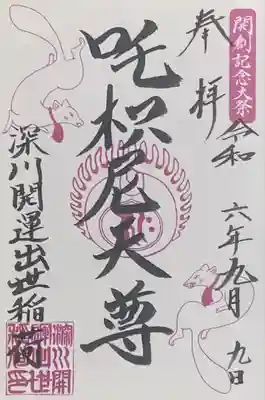 開創記念大祭
奉拝
令和六年九月九日
吒枳尼天尊
深川開運出世稲荷
深川開
運出世
稲荷印